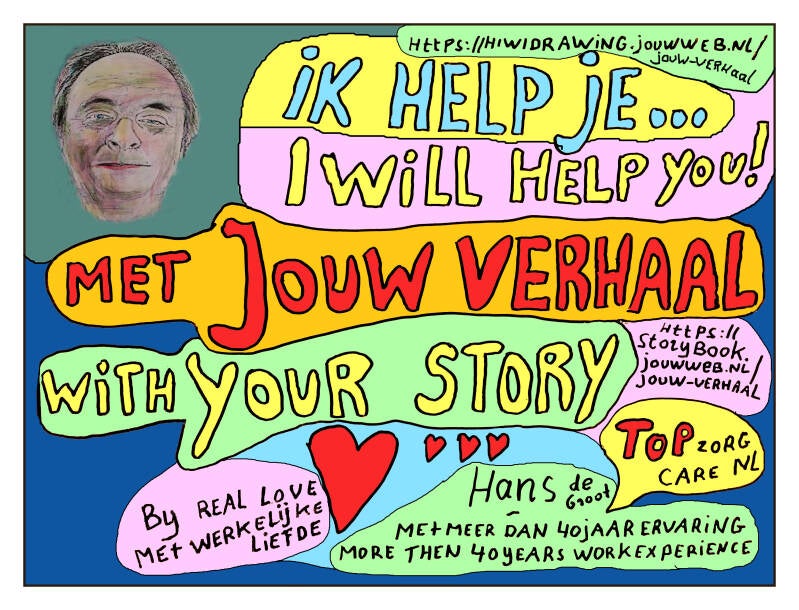 HttPS://HIWIDRAWING.JOUWWEB.NL/
JOUW-VERHAAL
iK HELP jE...
I WiLL HELP YOU!
MET JOUW VERHAAL
WiTH YOUR STORY
HttPS://
StoryBook.
jouwweB.NL/
JOUW-VERHAAL
TOP ZORG
CARE NL
By REAL LOVE
MET WERKELijKE
LiEFDE
Hans de
Groot
MEt MEER DAN 40 jAAR ERVARING
MORE THEN 40 YEARS WORKEXPERIENCE